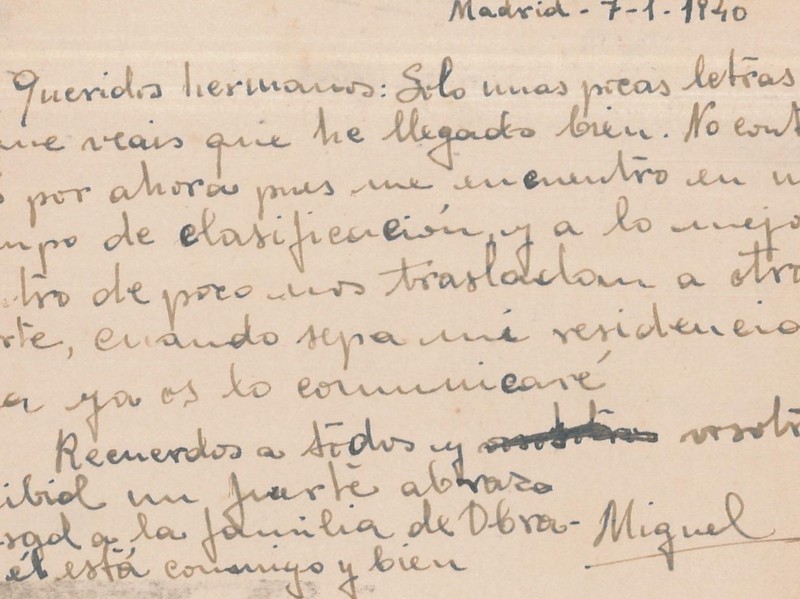 Madrid - 7-1-1940
Queridos hermanos: Solo unas pocas letras
que veais que he llegado bien. No cont
s por ahora pues me encuentro en u
mpo de clasificación, y a lo mejo
tro de poco nos trasladan a otro
rte, cuando sepa mi residencia
a ya os lo comunicaré
Recuerdos a todos y vosotr
ibid un fuerte abrazo
sgad a la familia de Obra- Miguel
él está conmigo y bien